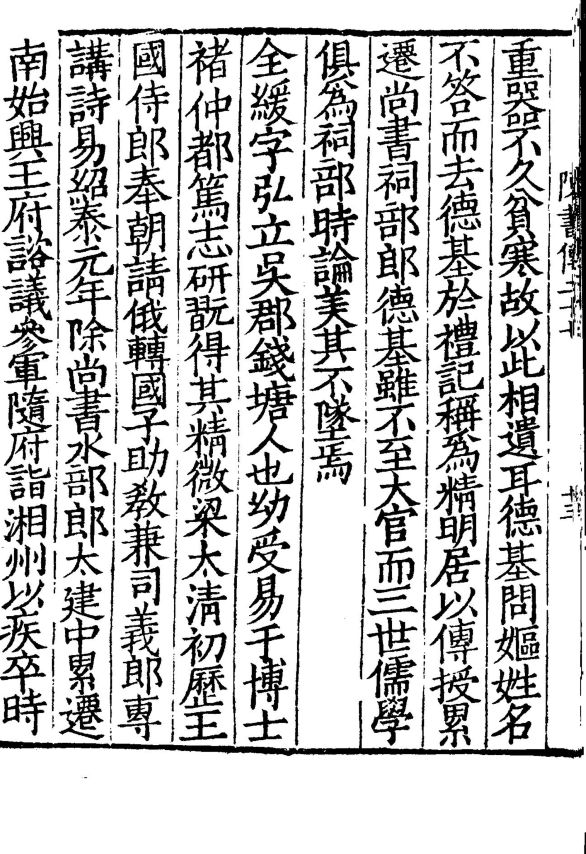 重器不久貧寒故以此相遺耳德基問嫗姓名
不答而去德基於禮記稱爲精明居以傳授累
遷尚書祠部郎德基雖不至大官而三世儒學
俱爲祠部時論美其不墜焉
全緩字弘立吳郡錢塘人也幼受易于博士
褚仲都篤志研翫得其精微梁太清初歷王
國侍郎奉朝請俄轉國子助教兼司義郎專
講詩易紹泰元年除尚書水部郎太建中累遷
南始興王府諮議參軍隨府詣湘州以疾卒時